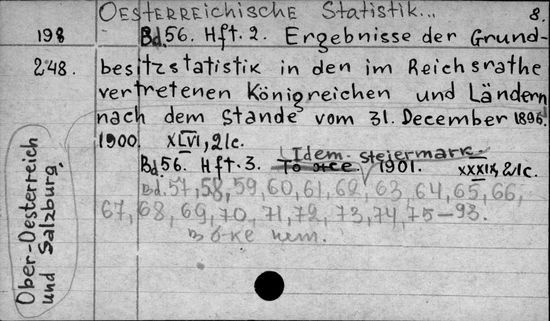 Oesterreichische Statistik... 8.
198 Bd. 56. Hft. 2. Ergebnisse der Grund-
248. besitzstatistik in den im Reichsrathe
vertretenen Königreichen und Ländern
nach dem Stande vom 31. December 1896.
1900. XLVI, 2 lc.
Idem. Steiermark.
Bd. 56. Hft. 3. 1901. XXXIX, &lc.
Bd. 57, 58, 59, 60, 61, 62, 63, 64, 65, 66,
67, 68, 69, 70, 71, 72, 73, 74, 75-93.
в б-ке нет.
Ober-Oesterreich
und Salzburg.